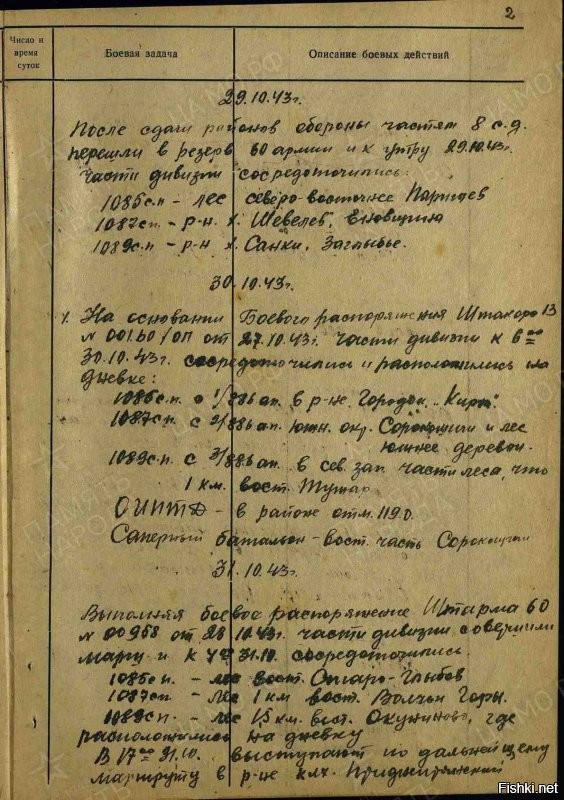 2
Число и время суток
Боевая задача
Описание боевых действий
29.10.43г.
После сдачи районов обороны частям 8 с.д.
перешли в резерв 60 армии и к утру 29.10.43г.
части дивизии сосредоточились:
1085сп - лес северо-восточнее
1087сп - р-н х. Шевелев,
1089сп - р-н х. Санки, Заглыбье.
30.10.43г.
На основании Боевого распоряжения Штакора 13
№ 00160/ОП от 27.10.43г. части дивизии к 6 00
30.10.43г. сосредоточились и расположились на
дневке:
1085с.п. с 1/886ап. в р-не. Городок,
1087сп. с 2/886ап. южн. окр. Сорокошичи и лес
южнее деревни.
1089сп с 3/886ап. в сев. зап. части леса, что
1 км. вост. Тужар
ОИПТД - в районе отм. 119.0.
Саперный батальон - вост. часть Сорокошичи
31.10.43г.
Выполняя боевое распоряжение Штарма 60
№ 00958 от 28.10.43г. части дивизии совершили
марш и к 31.10. сосредоточились:
1085сп - лес вост. Старо-Глыбов
1087сп - лес 1 км вост. Волчьи Горы.
1089сп - лес 1,5 км. вост. Окуниново, где
расположились на дневку
В 17 00 31.10. выступают по дальнейшему
маршруту в р-не клх.
Fishki.net